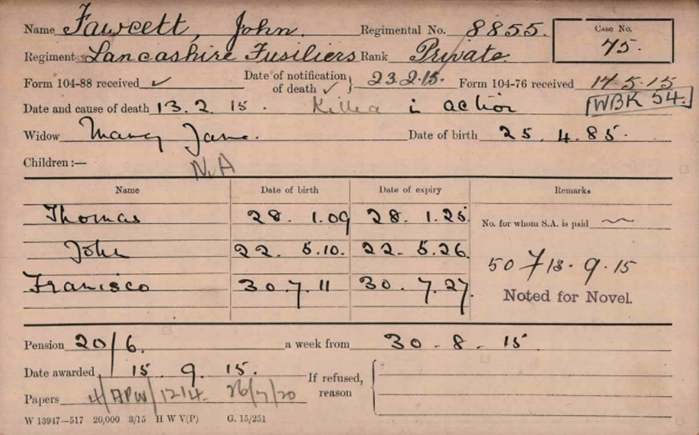 Name Fawcett, John. Regimental No. 8855. Case No.
Regiment Lancashire Fusiliers Rank Private. 75.
Form 104-88 received ✓ Date of notification of death ✓ } 23.2.15. Form 104-76 received 17.5.15
Date and cause of death 13.2.15. Killed in action [WBK 54.]
Widow Mary Jane. Date of birth 25.4.85.
Children :— N.A
Name Date of birth Date of expiry Remarks
Thomas 28. 1.09 28.1.25. No. for whom S.A. is paid
John 22. 5.10. 22.5.26.
Francisco 30.7.11 30.7.27. 13.9.15
Noted for Novel.
Pension 20/6. a week from 30.8.15.
Date awarded 15.9.15. If refused, reason
Papers 4/APW/1214. 26/7/20
W 13947—517 20,000 3/15 H W V(P) G. 15/251